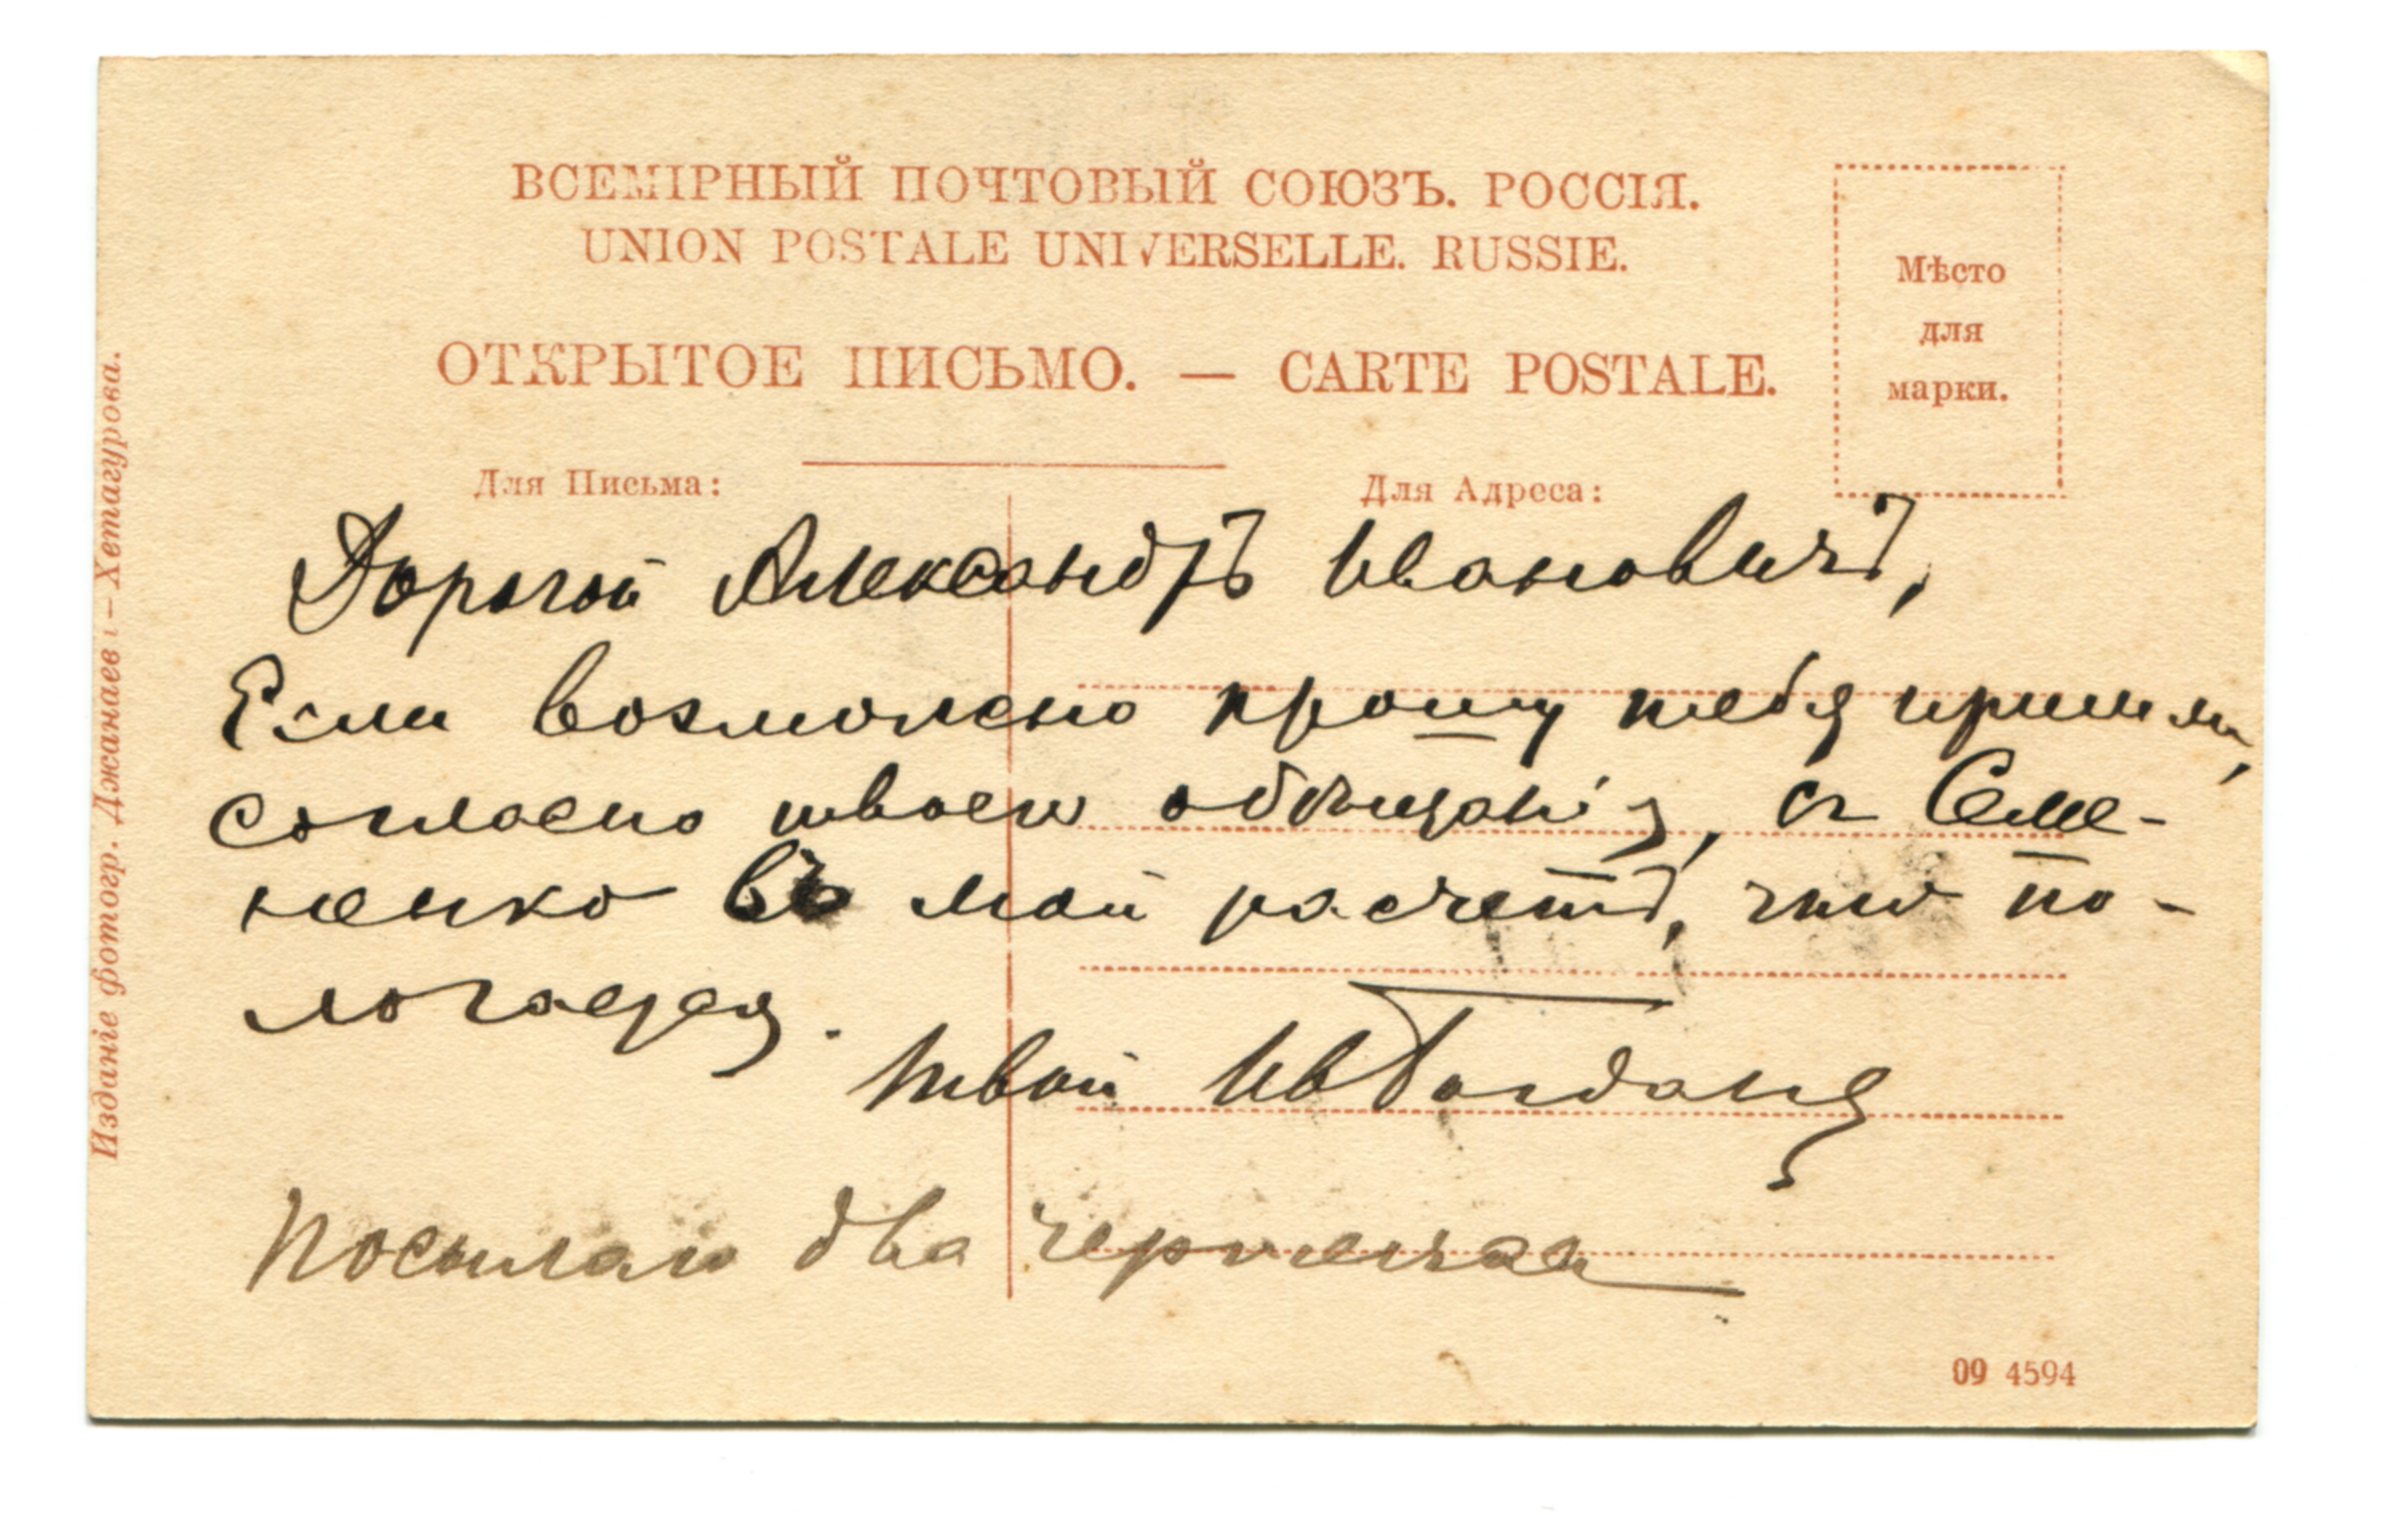 ВСЕМІРНЫЙ ПОЧТОВЫЙ СОЮЗЪ. РОССІЯ.
UNION POSTALE UNIVERSELLE. RUSSIE.
ОТКРЫТОЕ ПИСЬМО. — CARTE POSTALE.
Мѣсто
для
марки.
Для Письма:
Для Адреса:
Дорогой Александръ Ивановичъ,
Если возможно прошу тебя пришли,
согласно твоего обѣщанія, съ Семе-
ненко въ мой расчетъ, что по-
лагается.
Твой Ив
Посылаю два
Изданіе фотогр. Джанаева-Хетагурова.
09 4594